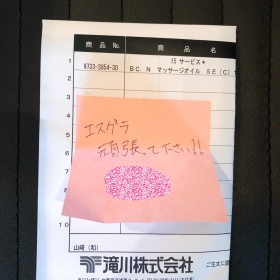 商品No.
商品名
1
15 サービス*
9733-3854-30
BC. N マッサージオイル SE(C)
2
3
エスグラ
頑張って下さい!!
10
山崎 (和)
滝川株式会社